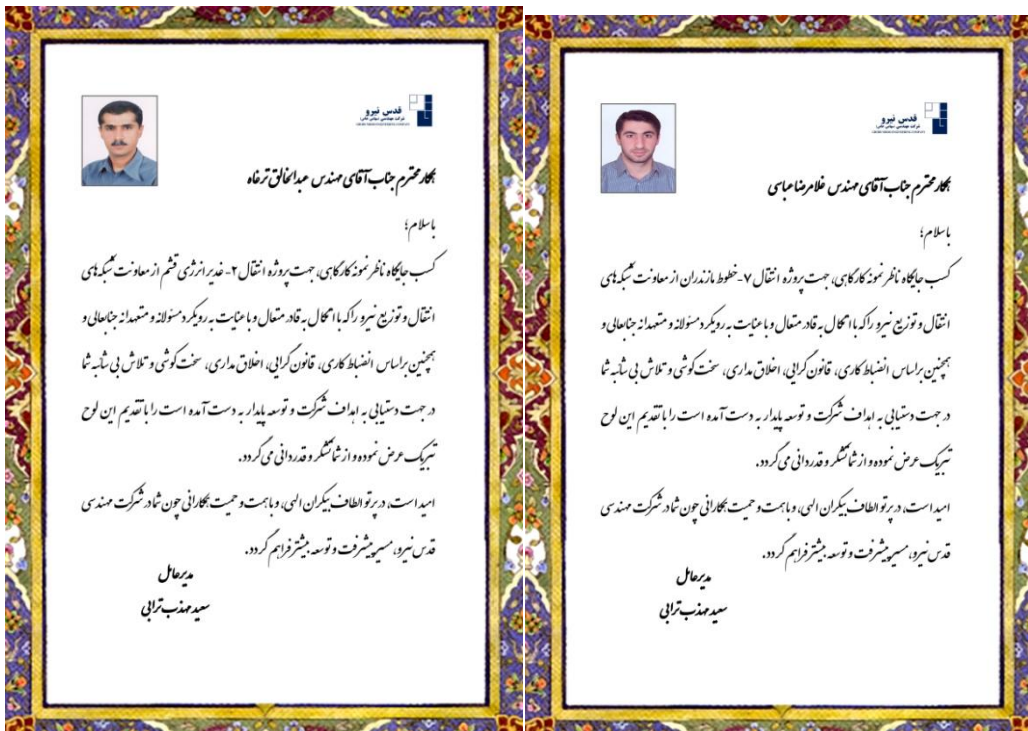 قدس نیرو
همکار محترم جناب آقای مهندس عبدالخالق ترخاه
باسلام؛
کسب جایگاه ناظر نمونه کارگاهی، جهت پروژه انتقال ۲- غدیر انرژی قشم از معاونت شبکه‌های
انتقال و توزیع نیرو را که با اتکال به قادر متعال و با عنایت به رویکرد مسئولانه و متعهدانه جنابعالی و
همچنین براساس انضباط کاری، قانون گرایی، اخلاق مداری، سخت کوشی و تلاش بی شائبه شما
در جهت دستیابی به اهداف شرکت و توسعه پایدار به دست آمده است را با تقدیم این لوح
تبریک عرض نموده و از شما تشکر و قدردانی می گردد.
امید است، در پرتو الطاف بیکران الهی، و با همت و حمیت همکارانی چون شما در شرکت مهندسی
قدس نیرو، مسیر پیشرفت و توسعه بیشتر فراهم گردد.
مدیرعامل
سعید مهذب ترابی
قدس نیرو
همکار محترم جناب آقای مهندس غلامرضا عباسی
باسلام؛
کسب جایگاه ناظر نمونه کارگاهی، جهت پروژه انتقال ۷- خطوط مازندران از معاونت شبکه‌های
انتقال و توزیع نیرو را که با اتکال به قادر متعال و با عنایت به رویکرد مسئولانه و متعهدانه جنابعالی و
همچنین براساس انضباط کاری، قانون گرایی، اخلاق مداری، سخت کوشی و تلاش بی شائبه شما
در جهت دستیابی به اهداف شرکت و توسعه پایدار به دست آمده است را با تقدیم این لوح
تبریک عرض نموده و از شما تشکر و قدردانی می گردد.
امید است، در پرتو الطاف بیکران الهی، و با همت و حمیت همکارانی چون شما در شرکت مهندسی
قدس نیرو، مسیر پیشرفت و توسعه بیشتر فراهم گردد.
مدیرعامل
سعید مهذب ترابی